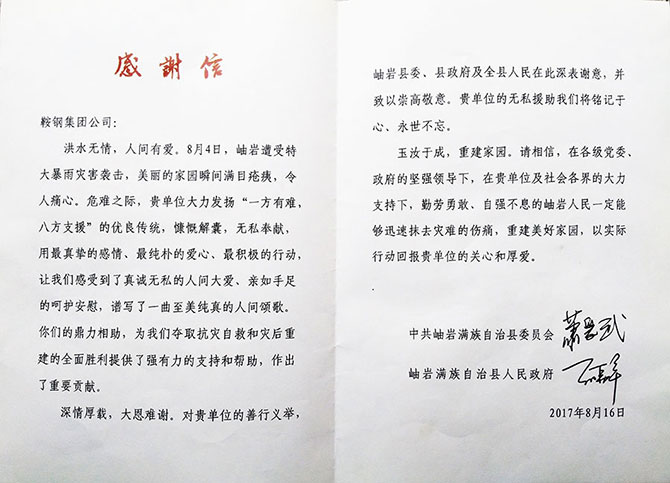 感謝信
鞍钢集团公司：
洪水无情，人间有爱。8月4日，岫岩遭受特
大暴雨灾害袭击，美丽的家园瞬间满目疮痍，令
人痛心。危难之际，贵单位大力发扬“一方有难，
八方支援”的优良传统，慷慨解囊，无私奉献，
用最真挚的感情、最纯朴的爱心、最积极的行动，
让我们感受到了真诚无私的人间大爱、亲如手足
的呵护安慰，谱写了一曲至美纯真的人间颂歌。
你们的鼎力相助，为我们夺取抗灾自救和灾后重
建的全面胜利提供了强有力的支持和帮助，作出
了重要贡献。
深情厚载，大恩难谢。对贵单位的善行义举，
岫岩县委、县政府及全县人民在此深表谢意，并
致以崇高敬意。贵单位的无私援助我们将铭记于
心、永世不忘。
玉汝于成，重建家园。请相信，在各级党委、
政府的坚强领导下，在贵单位及社会各界的大力
支持下，勤劳勇敢、自强不息的岫岩人民一定能
够迅速抹去灾难的伤痛，重建美好家园，以实际
行动回报贵单位的关心和厚爱。
中共岫岩满族自治县委员会
岫岩满族自治县人民政府
2017年8月16日